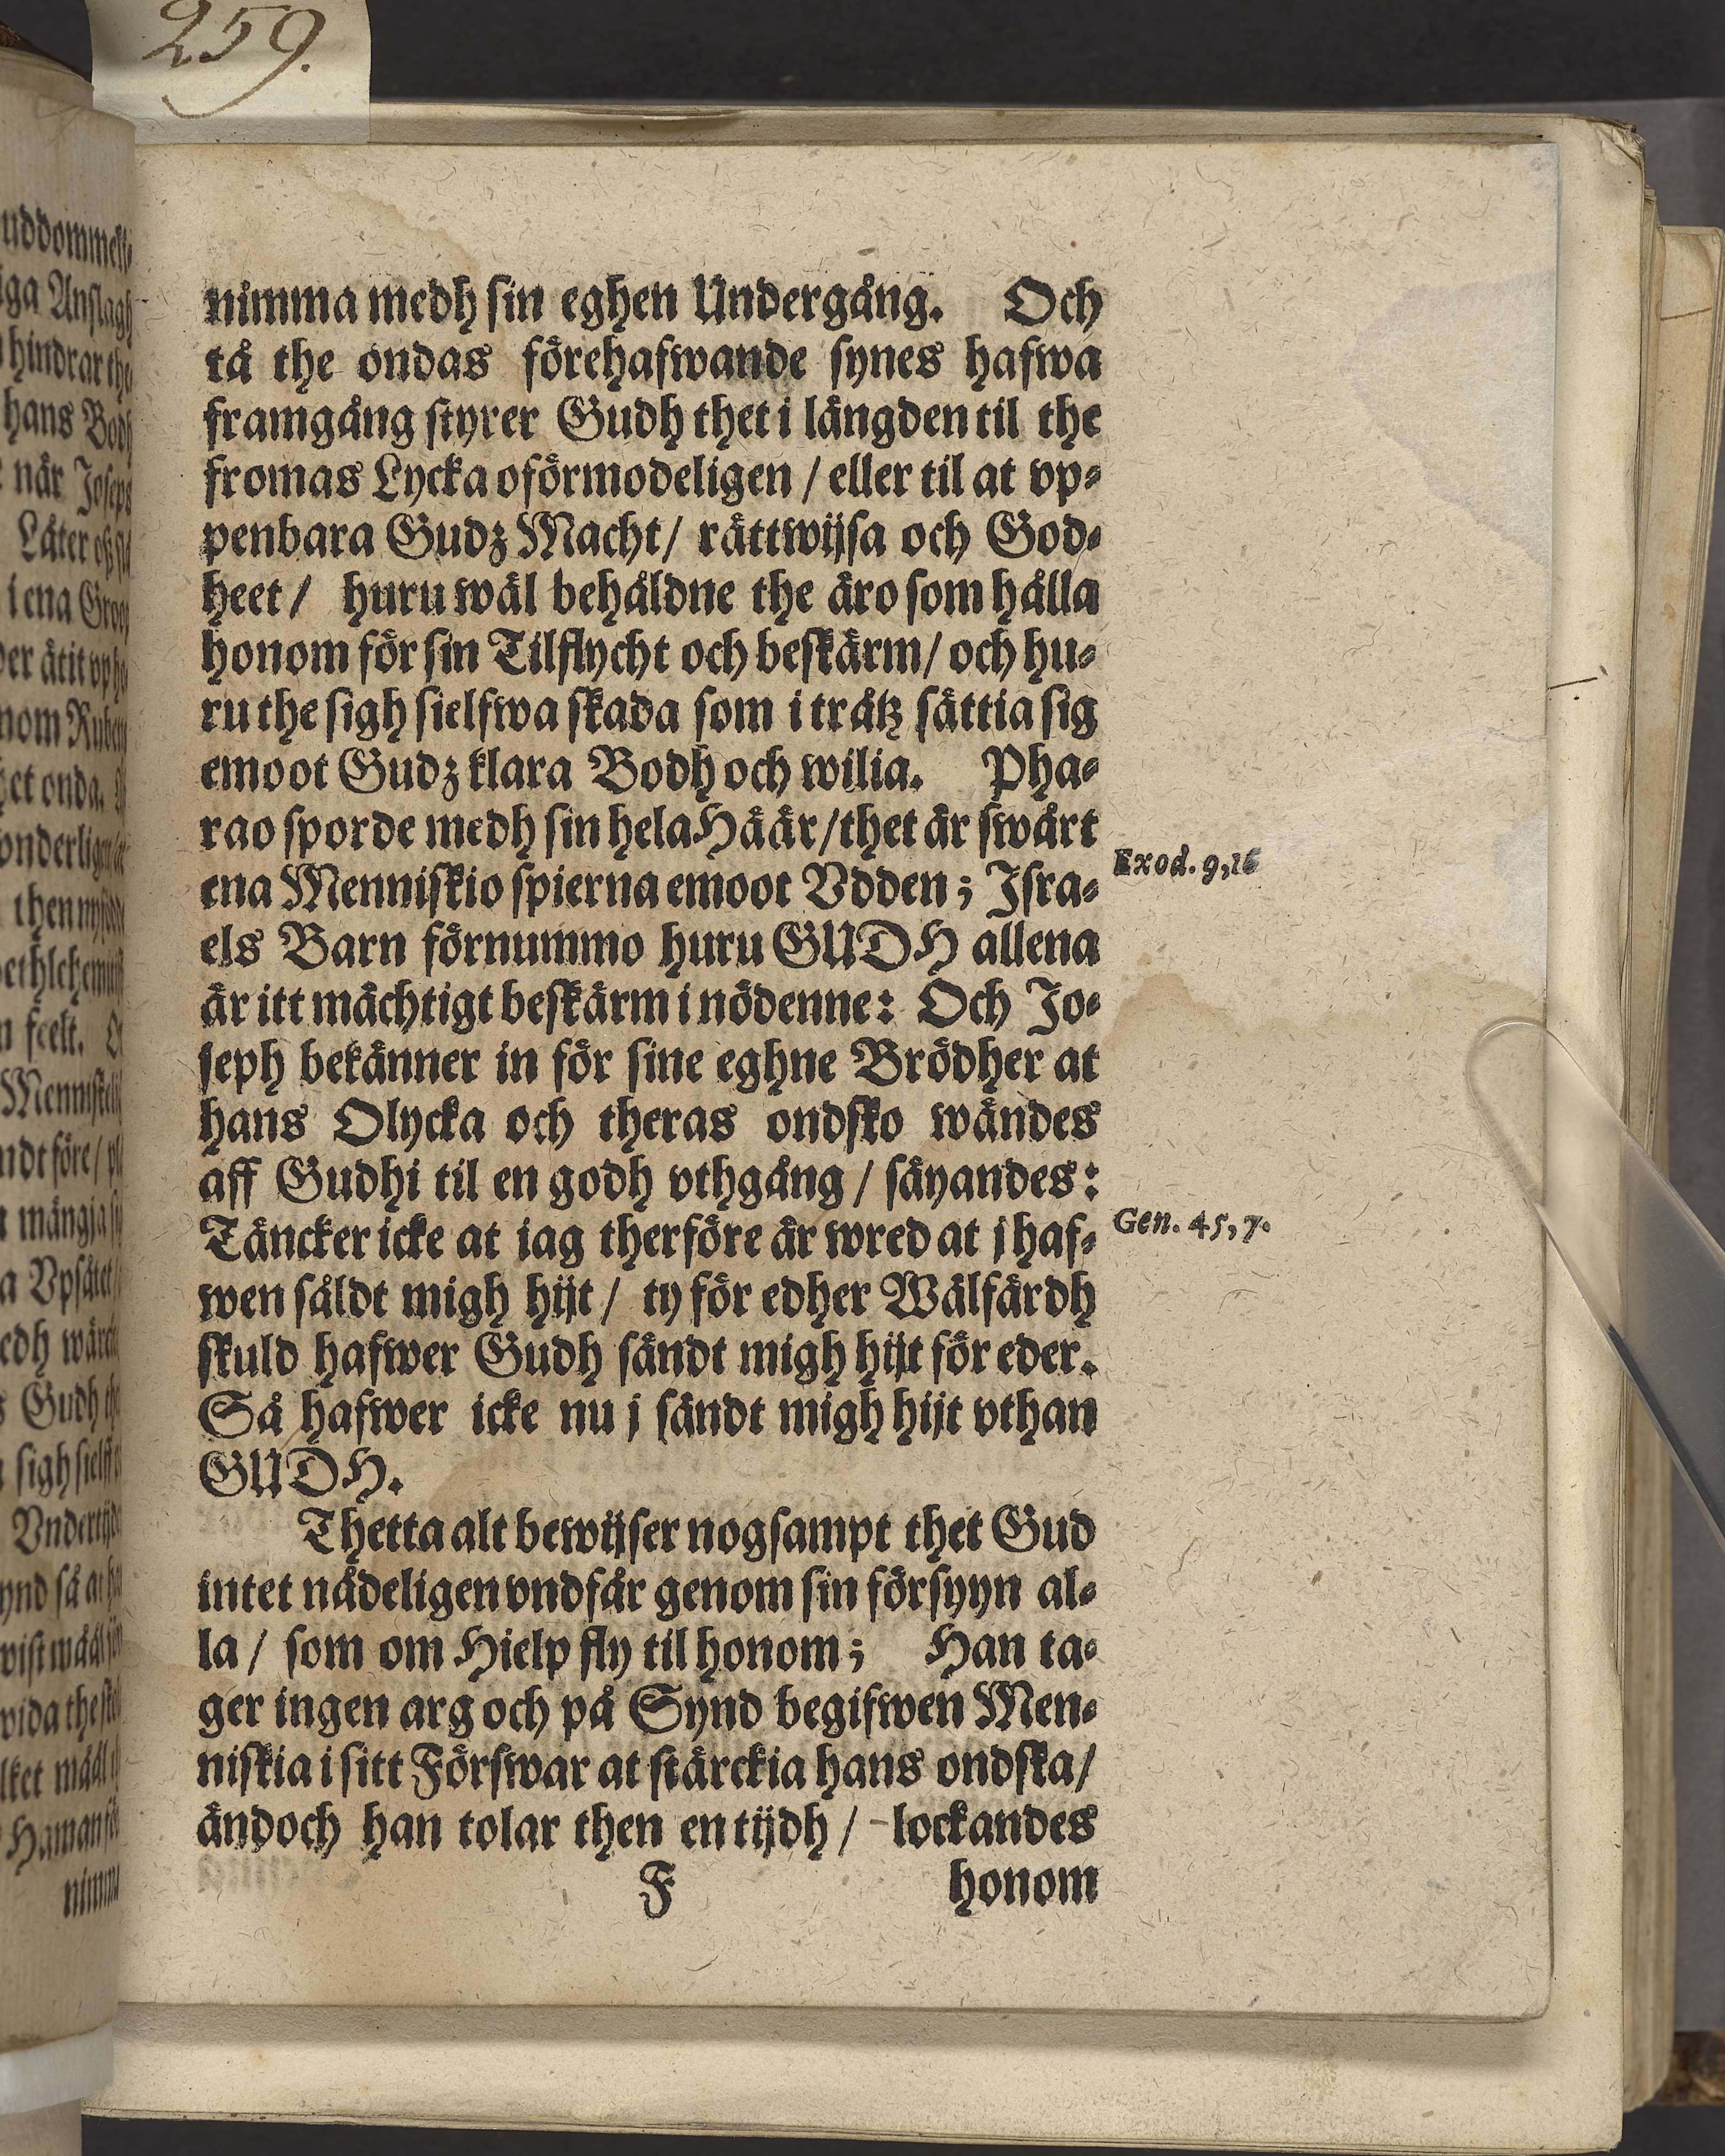 259.
nimma medh sin eghen Undergång. Och
tå the ondas förehafwande synes hafwa
framgång styrer Gudh thet i längden til the
fromas Lycka oförmodeligen / eller til at vp-
penbara Gudz Macht / rättwijsa och God-
heet / huru wäl behåldne the äro som hålla
honom för sin Tilflycht och beskärm / och hu-
ru the sigh sielfwa skada som i tråtz sättia sig
emoot Gudz klara Bodh och wilia. Pha-
rao sporde medh sin hela Häär / thet är swårt
ena Menniskio spierna emoot Vdden; Isra-
els Barn förnummo huru GUDH allena
är itt mächtigt beskärm i nödenne: Och Jo-
seph bekänner in för sine eghne Brödher at
hans Olycka och theras ondsko wändes
aff Gudhi til en godh vthgång / säyandes:
Täncker icke at iag therföre är wred at j haf-
wen såldt migh hijt / ty för edher Wälfärdh
skuld hafwer Gudh sändt migh hijt för eder.
Så hafwer icke nu j sändt migh hijt vthan
GUDH.
Thetta alt bewijser nogsampt thet Gud
intet nådeligen vndfår genom sin försyyn al-
la / som om Hielp fly til honom; Han ta-
ger ingen arg och på Synd begifwen Men-
niskia i sitt Förswar at stärckia hans ondska /
ändoch han tolar then en tijdh / lockandes
F honom
Exod. 9,16
Gen. 45, 7.
uddommeli
iga Anslagh
hindrar the
hans Bodh
när Joseps
Låter
i ena Groop
er ätit vp
nom Ruben
et onda.
onderligen
then
feelt.
före /
mångia
a Vpsåtet
edh
Gudh the
sigh sielff
ynd så at
wida the
Haman för
nimma